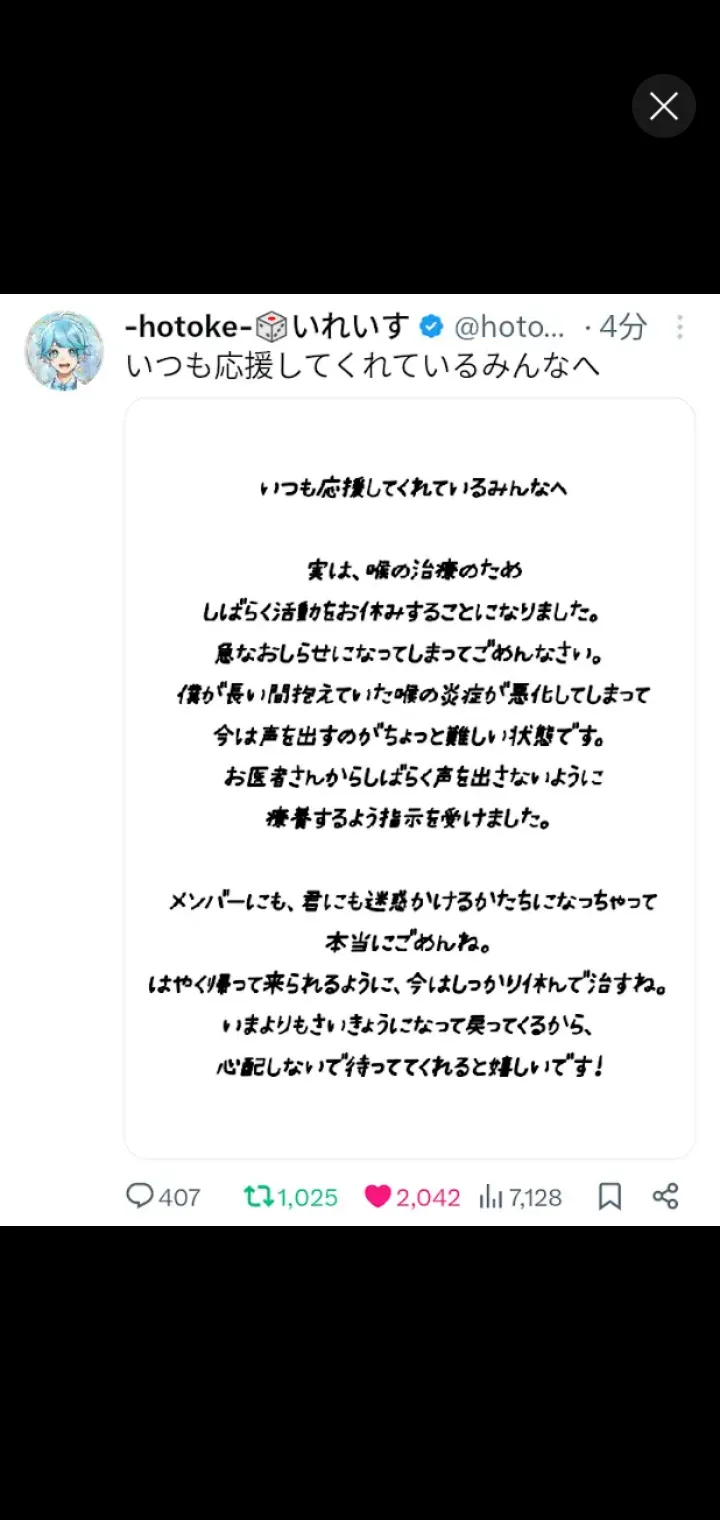 -hotoke-🎲いれいす @hoto... ・4分
いつも応援してくれているみんなへ
いつも応援してくれているみんなへ
実は、喉の治療のため
しばらく活動をお休みすることになりました。
急なおしらせになってしまってごめんなさい。
僕が長い間抱えていた喉の炎症が悪化してしまって
今は声を出すのがちょっと難しい状態です。
お医者さんからしばらく声を出さないように
療養するよう指示を受けました。
メンバーにも、君にも迷惑かけるかたちになっちゃって
本当にごめんね。
はやく帰って来られるように、今はしっかり休んで治すね。
いまよりもさいきょうになって戻ってくるから、
心配しないで待っててくれると嬉しいです!
407 1,025 2,042 7,128